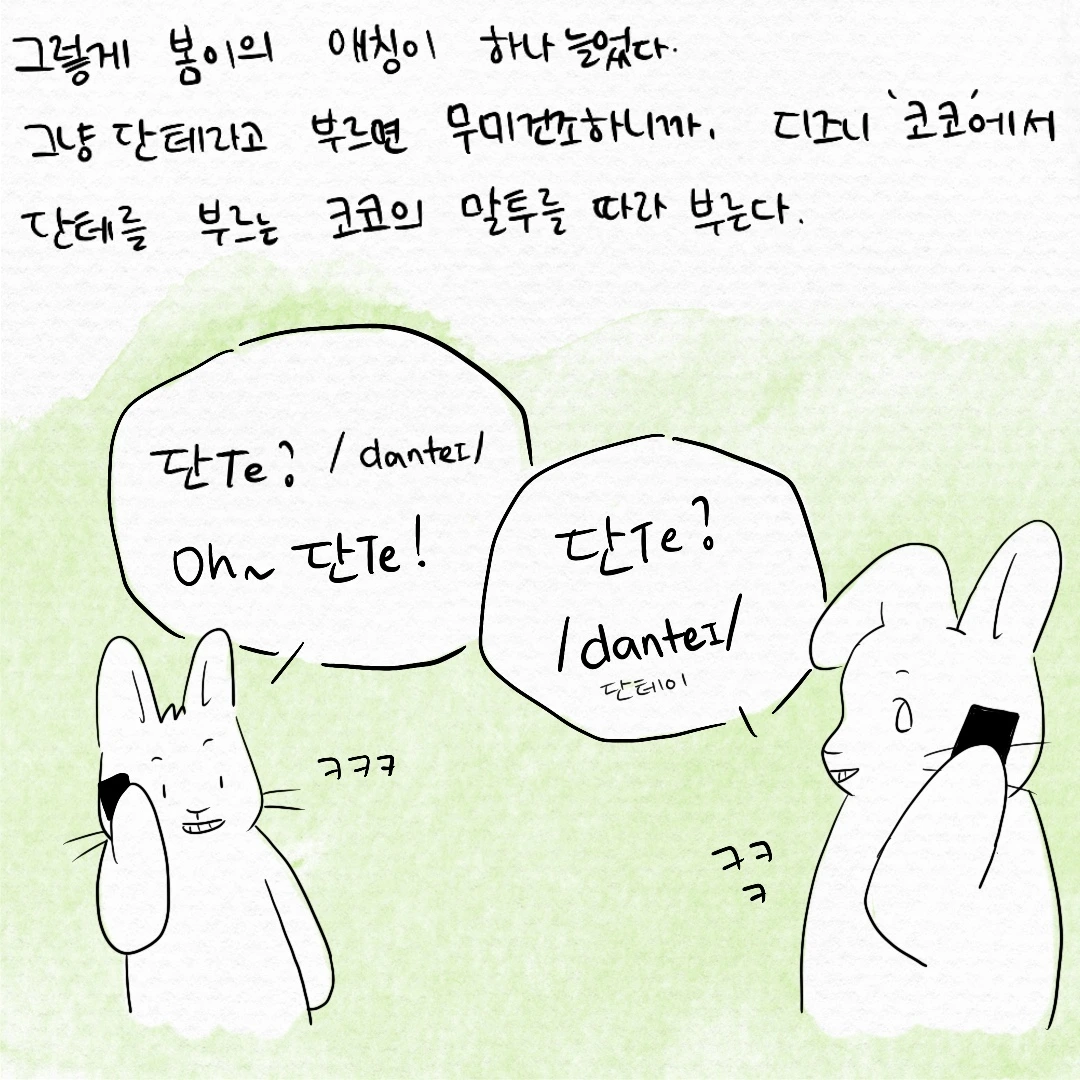 그렇게 봄이의 애칭이 하나 늘었다.
그냥 단테라고 부르면 무미건조하니까. 디즈니 '코코'에서
단테를 부르는 코코의 말투를 따라 부른다.
단Te? /danteɪ/
Oh~ 단Te!
단Te?
/danteɪ/
단테이
ㅋㅋㅋ
ㅋㅋ
ㅋ